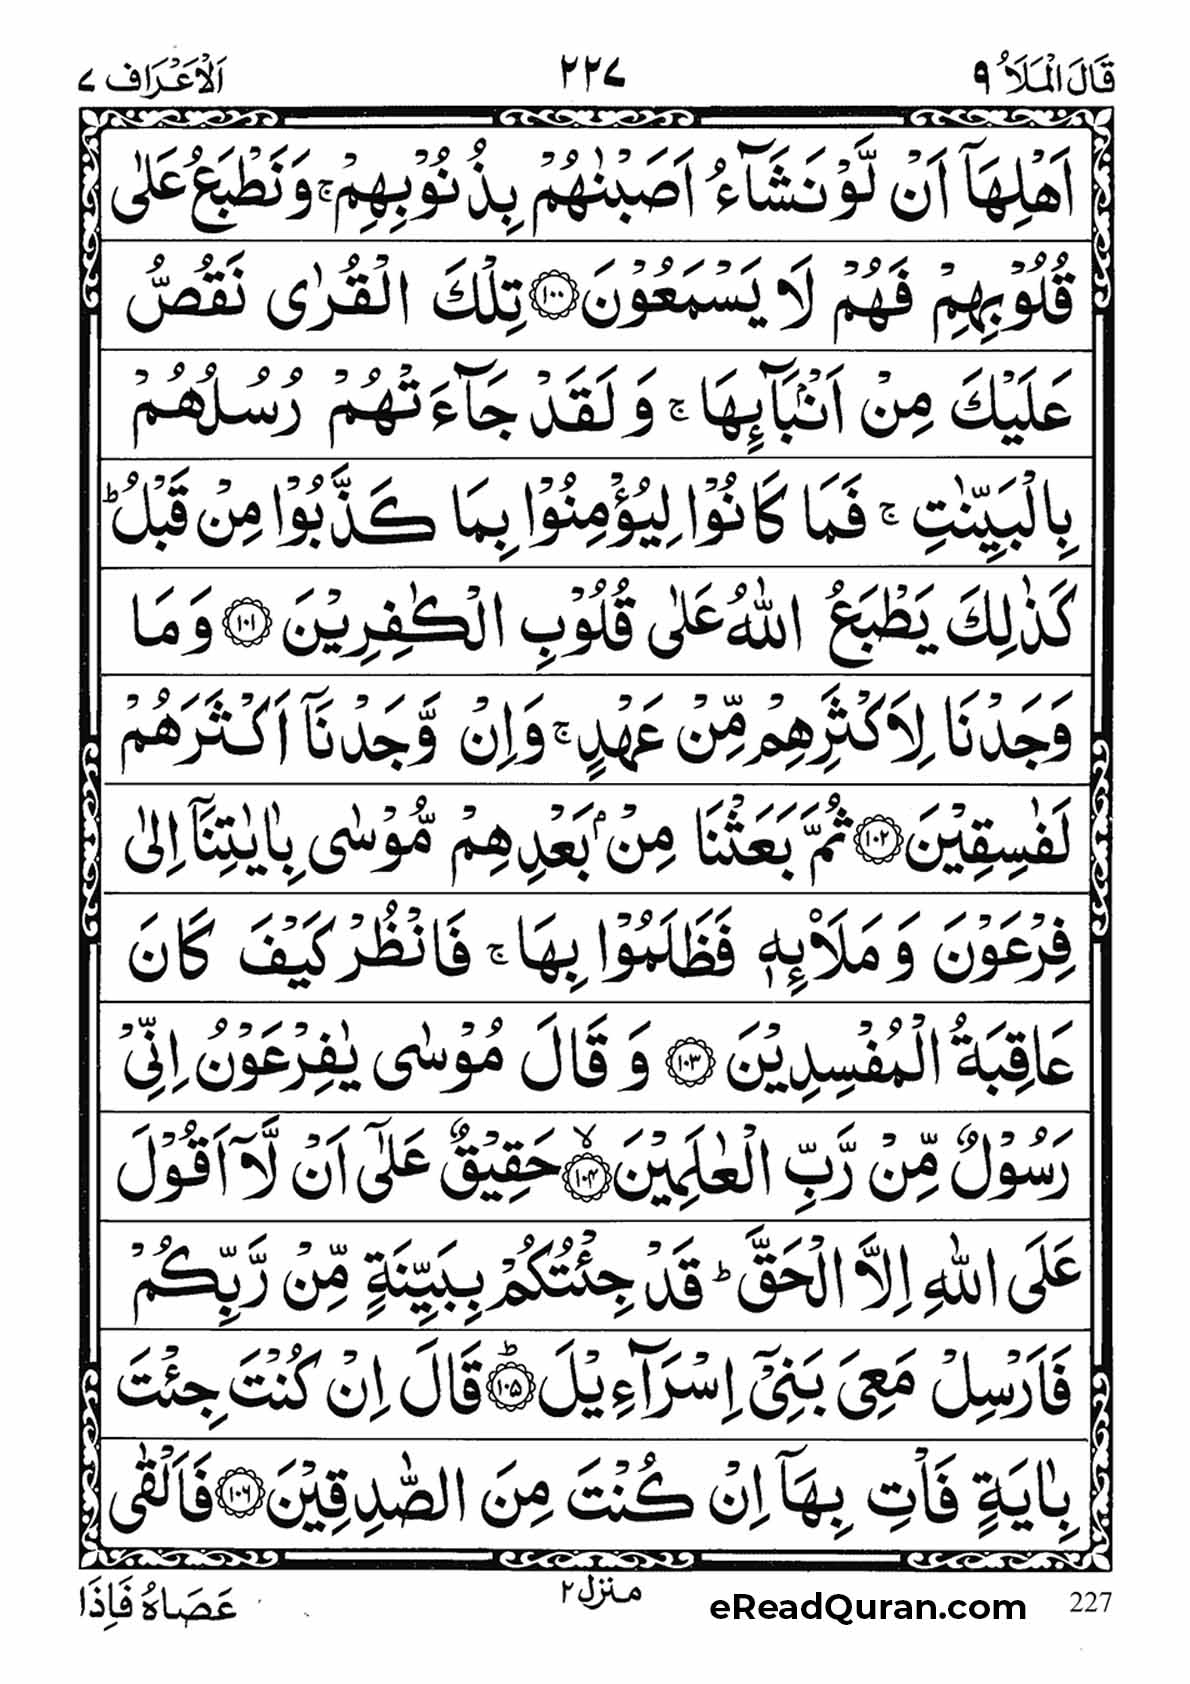 قَالَ الْمَلَاُ ٩
٢٢٧
اَلْاَعْرَاف ٧
اَهْلِهَآ اَنْ لَّوْ نَشَآءُ اَصَبْنٰهُمْ بِذُنُوْبِهِمْ ۚ وَ نَطْبَعُ عَلٰى
قُلُوْبِهِمْ فَهُمْ لَا يَسْمَعُوْنَ ﴿۱۰۰﴾ تِلْكَ الْقُرٰى نَقُصُّ
عَلَيْكَ مِنْ اَنْۢبَآئِهَا ۚ وَ لَقَدْ جَآءَتْهُمْ رُسُلُهُمْ
بِالْبَيِّنٰتِ ۚ فَمَا كَانُوْا لِيُؤْمِنُوْا بِمَا كَذَّبُوْا مِنْ قَبْلُ ؕ
كَذٰلِكَ يَطْبَعُ اللّٰهُ عَلٰى قُلُوْبِ الْكٰفِرِيْنَ ﴿۱۰۱﴾ وَ مَا
وَجَدْنَا لِاَكْثَرِهِمْ مِّنْ عَهْدٍ ۚ وَ اِنْ وَّجَدْنَآ اَكْثَرَهُمْ
لَفٰسِقِيْنَ ﴿۱۰۲﴾ ثُمَّ بَعَثْنَا مِنْۢ بَعْدِهِمْ مُّوْسٰى بِاٰيٰتِنَآ اِلٰى
فِرْعَوْنَ وَ مَلَا۟ئِهٖ فَظَلَمُوْا بِهَا ۚ فَانْظُرْ كَيْفَ كَانَ
عَاقِبَةُ الْمُفْسِدِيْنَ ﴿۱۰۳﴾ وَ قَالَ مُوْسٰى يٰفِرْعَوْنُ اِنِّيْ
رَسُوْلٌ مِّنْ رَّبِّ الْعٰلَمِيْنَ ۙ﴿۱۰۴﴾ حَقِيْقٌ عَلٰٓى اَنْ لَّآ اَقُوْلَ
عَلَى اللّٰهِ اِلَّا الْحَقَّ ؕ قَدْ جِئْتُكُمْ بِبَيِّنَةٍ مِّنْ رَّبِّكُمْ
فَاَرْسِلْ مَعِىَ بَنِىْٓ اِسْرَآءِيْلَ ؕ﴿۱۰۵﴾ قَالَ اِنْ كُنْتَ جِئْتَ
بِاٰيَةٍ فَاْتِ بِهَآ اِنْ كُنْتَ مِنَ الصّٰدِقِيْنَ ﴿۱۰۶﴾ فَاَلْقٰى
عَصَاهُ فَاِذَا
منزل ٢
eReadQuran.com
227